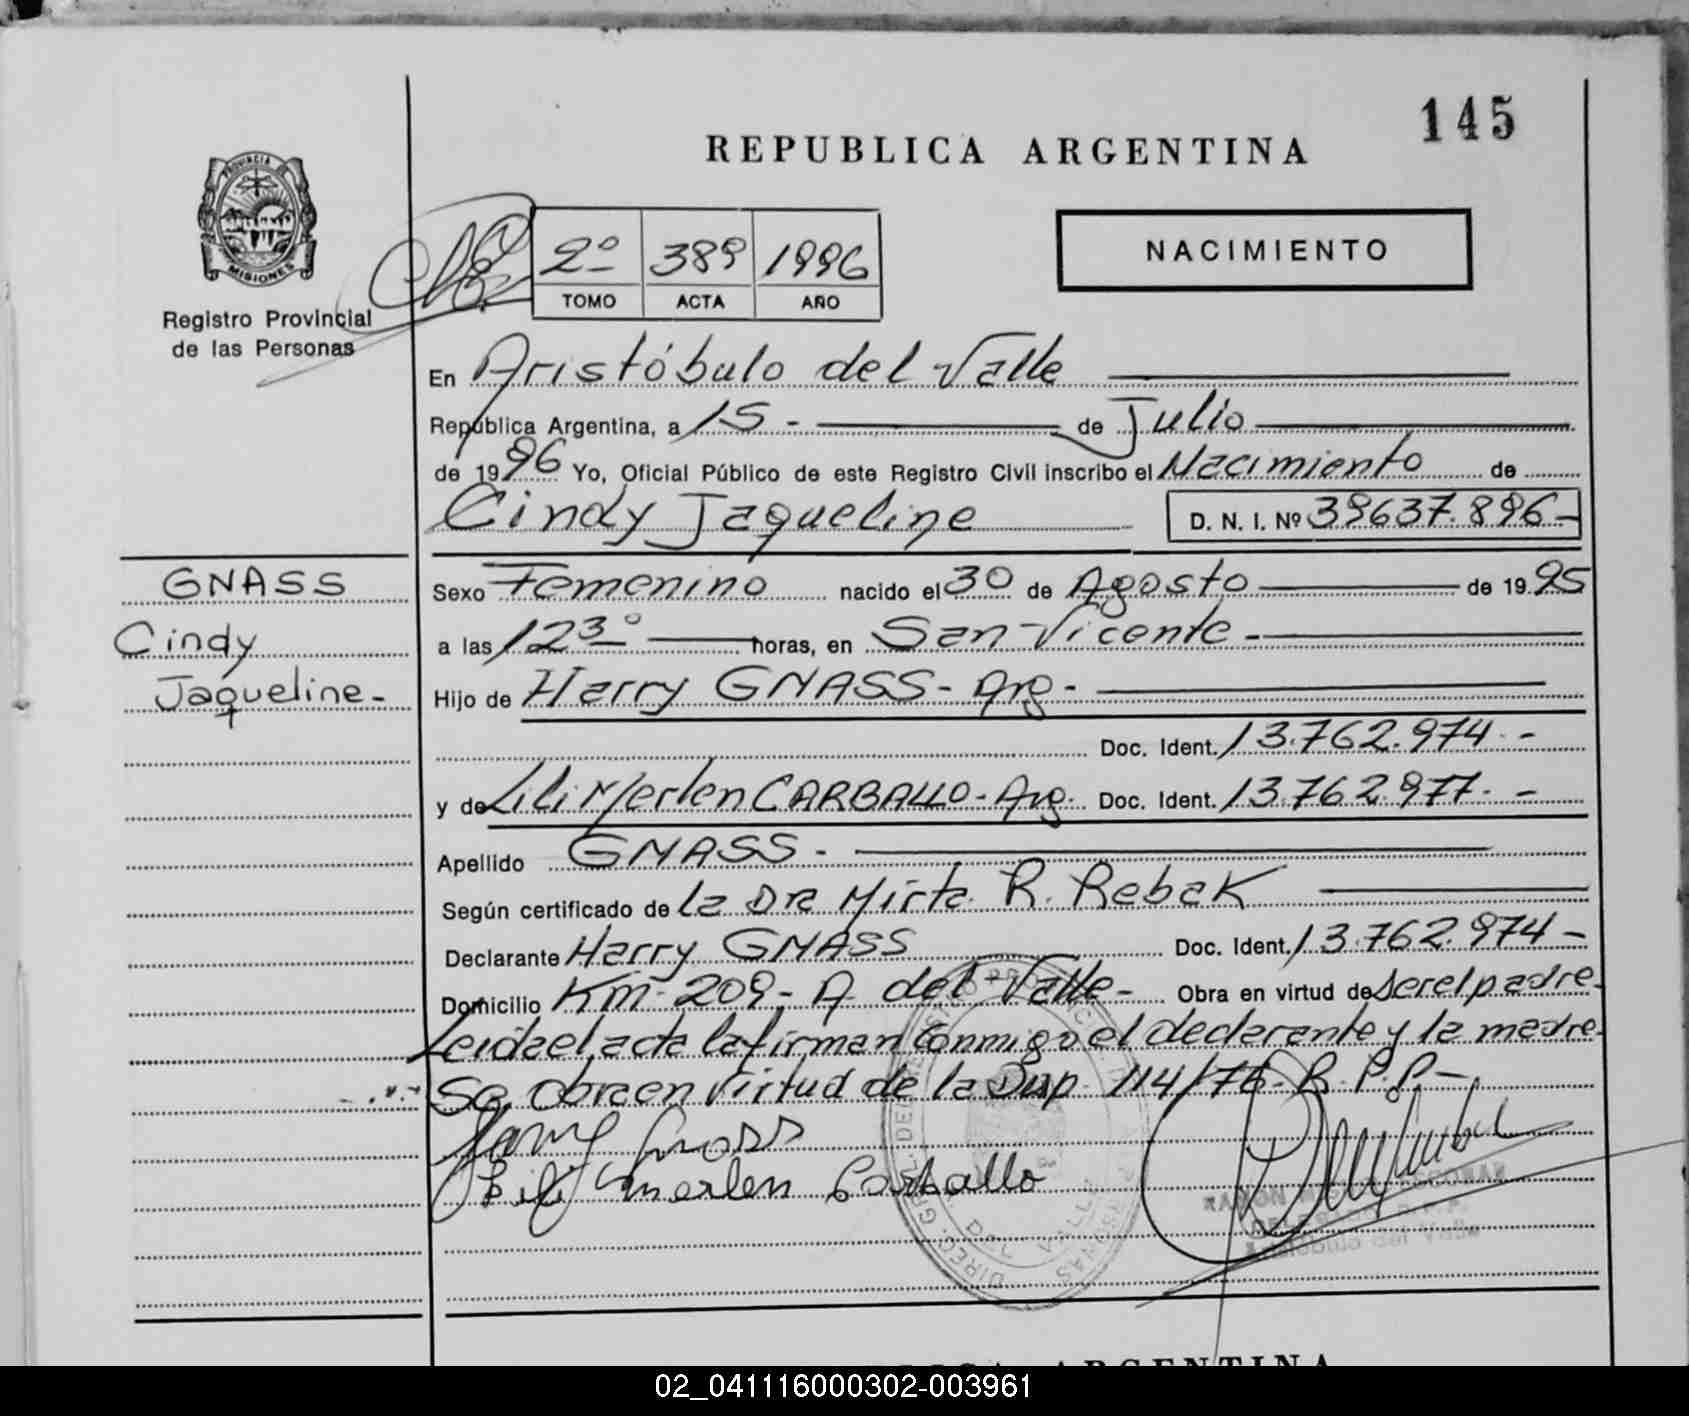 145
REPUBLICA ARGENTINA
PROVINCIA
MISIONES
Registro Provincial
de las Personas
2º 389 1996
TOMO ACTA AÑO
NACIMIENTO
En Aristóbulo del Valle
República Argentina, a 15 - de Julio
de 1996 Yo, Oficial Público de este Registro Civil inscribo el Nacimiento de
Cindy Jaqueline D. N. I. Nº 39637.896-
GNASS
Cindy
Jaqueline-
Sexo Femenino nacido el 30 de Agosto de 1995
a las 123º horas, en San Vicente -
Hijo de Harry GNASS - Arg -
Doc. Ident. 13.762.974 -
y de Lili Merlen CARBALLO - Arg. Doc. Ident. 13.762.977. -
Apellido GNASS -
Según certificado de la Dra Mirta R. Rebak
Declarante Harry GNASS Doc. Ident. 13.762.974 -
Domicilio Km - 209 - A del Valle - Obra en virtud de ser el padre -
Leida el acta la firman conmigo el declarante y la madre.
Se obra en virtud de la Disp 114/76 - R. P. P. -
Harry Gnass
Lili merlen Carballo
DEL VALLE
Aristóbulo del Valle
ARGENTINA
02_041116000302-003961